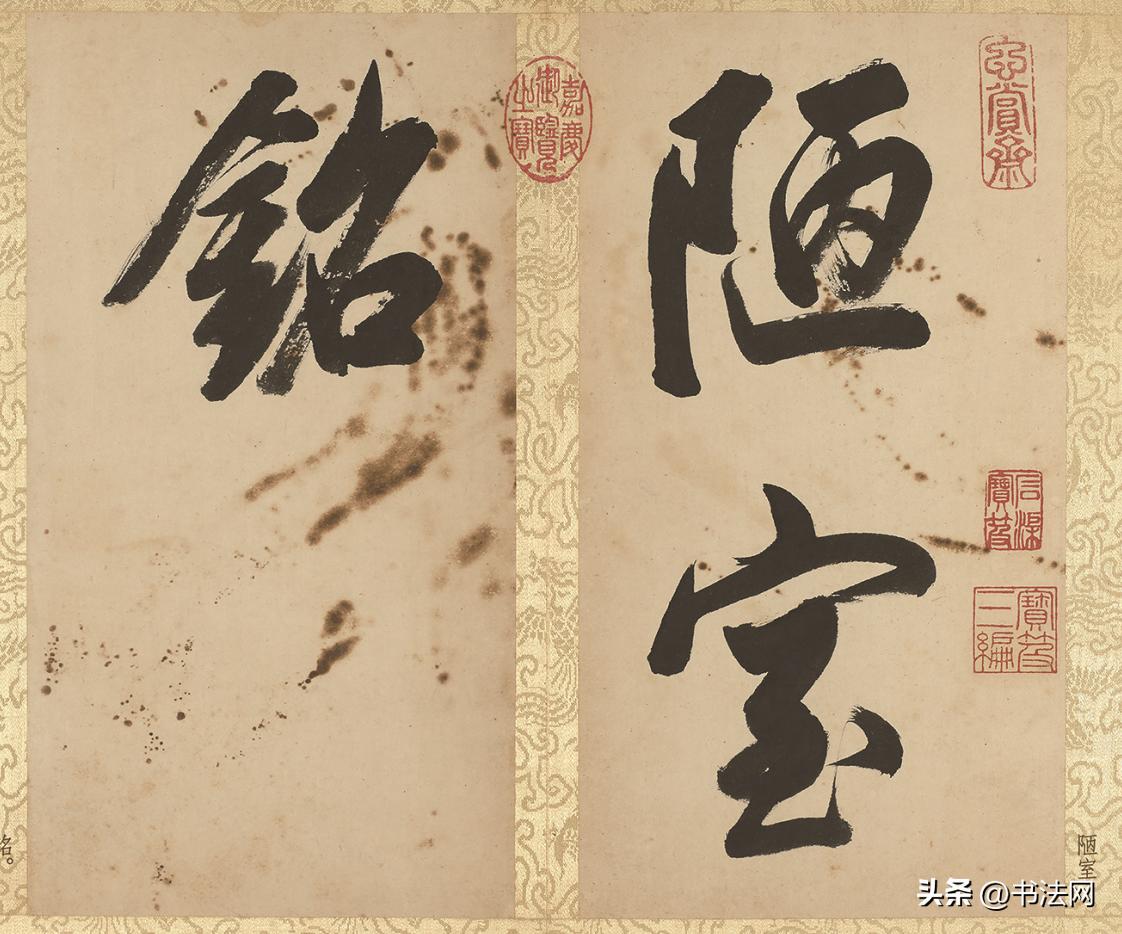 陋室
銘
石渠寶笈
寶笈三編
嘉慶御覽之寶
陋室
铭。
头条 @书法网